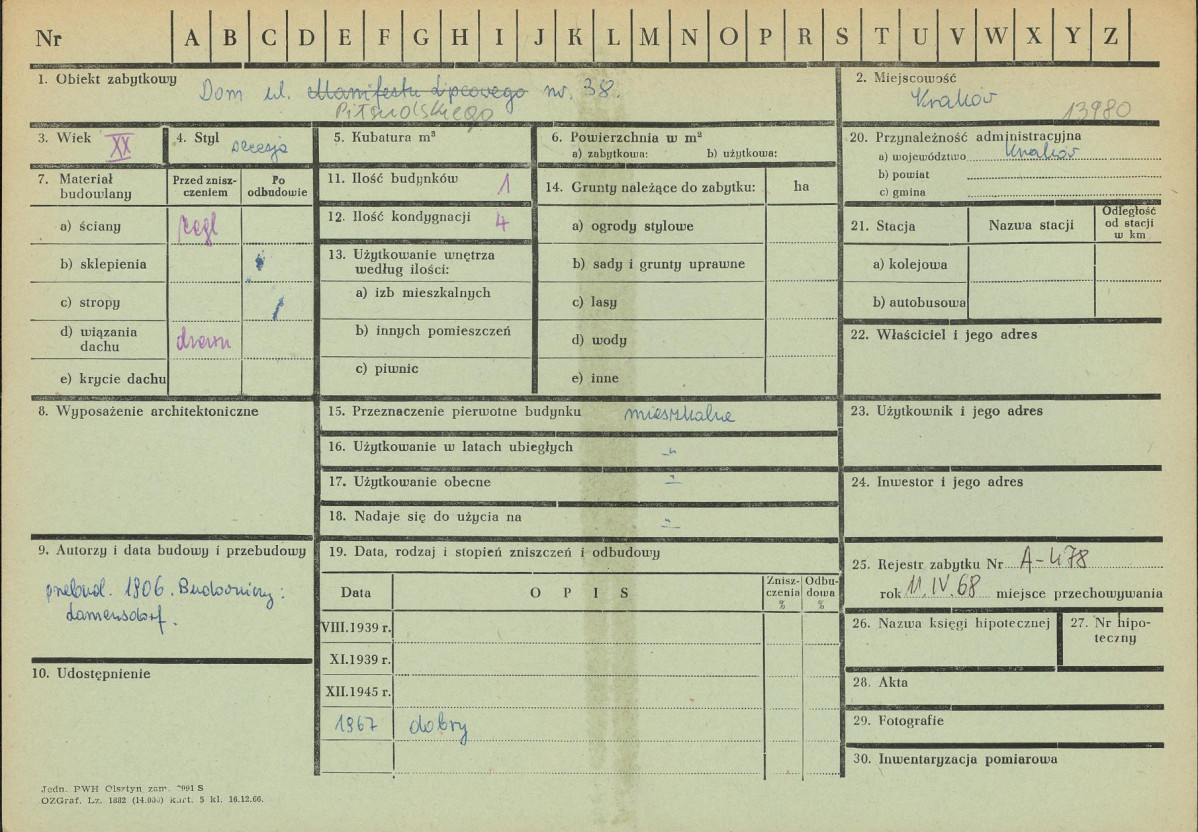 Nr A B C D E F G H I J K L M N O P R S T U V W X Y Z
1. Obiekt zabytkowy Dom ul. Manifestu Lipcowego nr. 38.
Piłsudskiego
2. Miejscowość
Kraków
13980
3. Wiek XX
4. Styl secesja
5. Kubatura m³
6. Powierzchnia w m²
a) zabytkowa: b) użytkowa:
20. Przynależność administracyjna
a) województwo Kraków
b) powiat
c) gmina
7. Materiał budowlany
Przed znisz-
czeniem
Po
odbudowie
a) ściany cegł
b) sklepienia
c) stropy
d) wiązania
dachu drewn
e) krycie dachu
11. Ilość budynków 1
12. Ilość kondygnacji 4
13. Użytkowanie wnętrza
według ilości:
a) izb mieszkalnych
b) innych pomieszczeń
c) piwnic
14. Grunty należące do zabytku: ha
a) ogrody stylowe
b) sady i grunty uprawne
c) lasy
d) wody
e) inne
21. Stacja Nazwa stacji
Odległość
od stacji
w km
a) kolejowa
b) autobusowa
22. Właściciel i jego adres
8. Wyposażenie architektoniczne
15. Przeznaczenie pierwotne budynku mieszkalne
16. Użytkowanie w latach ubiegłych -"-
17. Użytkowanie obecne -"-
18. Nadaje się do użycia na -"-
23. Użytkownik i jego adres
24. Inwestor i jego adres
9. Autorzy i data budowy i przebudowy
przebud. 1906. Budowniczy:
Lamensdorf.
10. Udostępnienie
19. Data, rodzaj i stopień zniszczeń i odbudowy
Data O P I S
Znisz-
czenia
%
Odbu-
dowa
%
VIII.1939 r.
XI.1939 r.
XII.1945 r.
1967 dobry
25. Rejestr zabytku Nr A-478
rok 11.IV.68 miejsce przechowywania
26. Nazwa księgi hipotecznej
27. Nr hipo-
teczny
28. Akta
29. Fotografie
30. Inwentaryzacja pomiarowa
Jedn. PWH Olsztyn zam. 2091 S
OZGraf. Lz. 1882 (14.000) kart. 5 kl. 16.12.66.